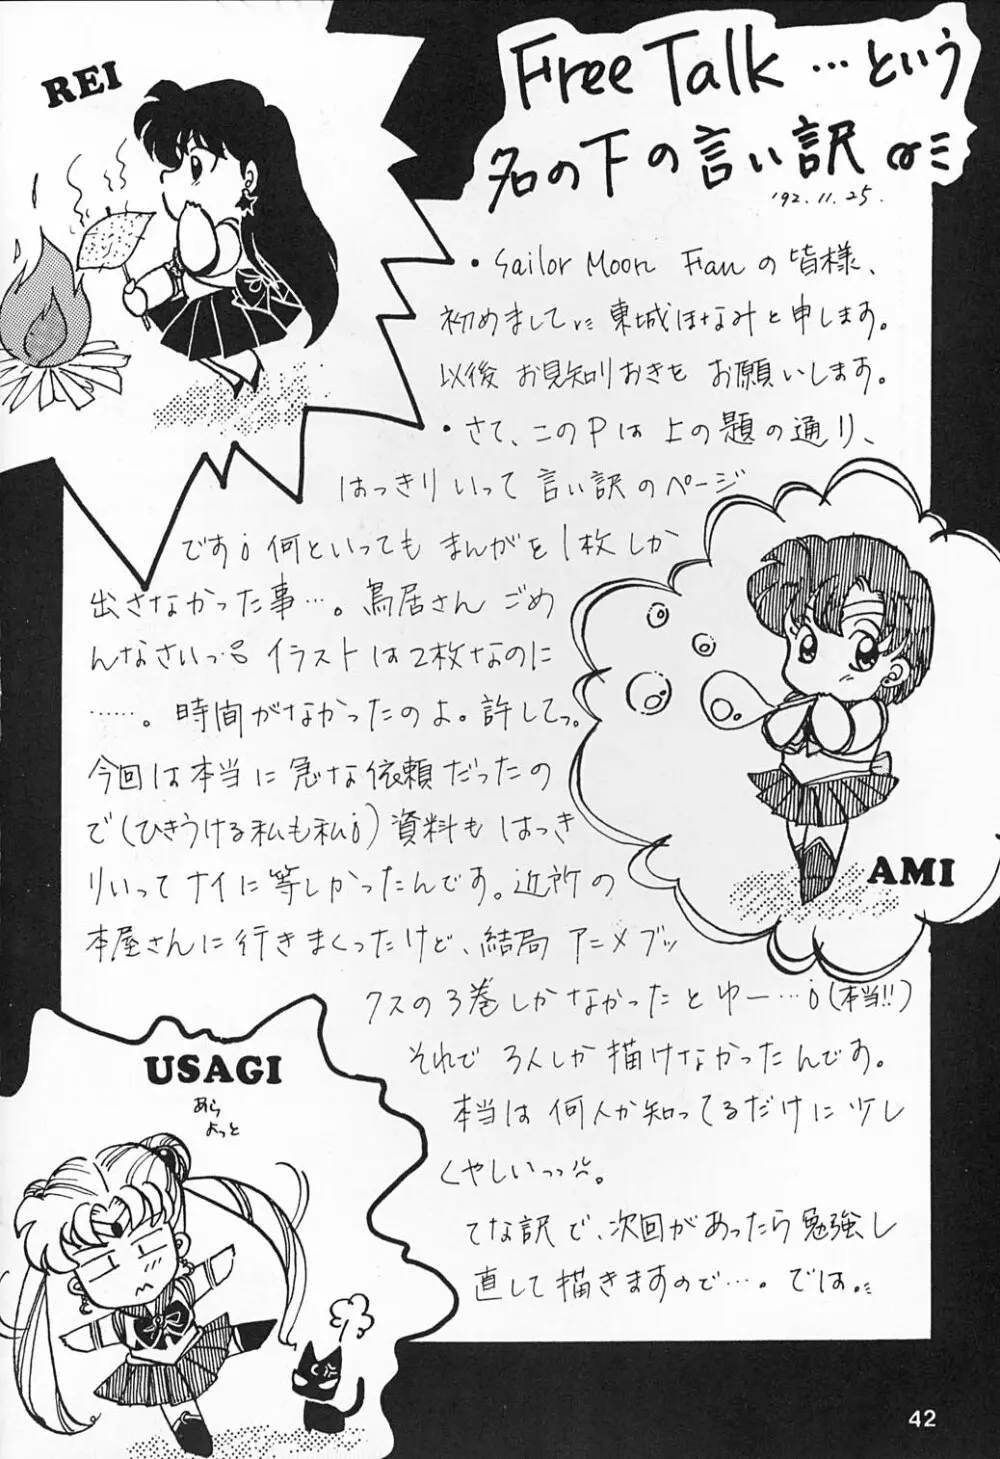 REI
Free Talk …という
名の下の言い訳
'92.11.25.
・Sailor Moon Fanの皆様、
初めまして 東城ほなみと申します。
以後 お見知りおきを お願いします。
・さて、このPは上の題の通り、
はっきりいって 言い訳のページ
です 何といっても まんがを1枚しか
出さなかった事…。鳥居さん ごめ
んなさいっ イラストは2枚なのに
……。時間がなかったのよ。許してっ。
今回は本当に急な依頼だったの
で(ひきうける私も私)資料も はっき
りいってナイに等しかったんです。近所の
本屋さんに行きまくったけど、結局 アニメブッ
クスの3巻しかなかったとゆー…(本当!!)
それで 3人しか描けなかったんです。
本当は 何人か知ってるだけに 少し
くやしいっっ。
てな訳で、次回があったら勉強し
直して描きますので…。では。
AMI
USAGI
あら
よっと
42